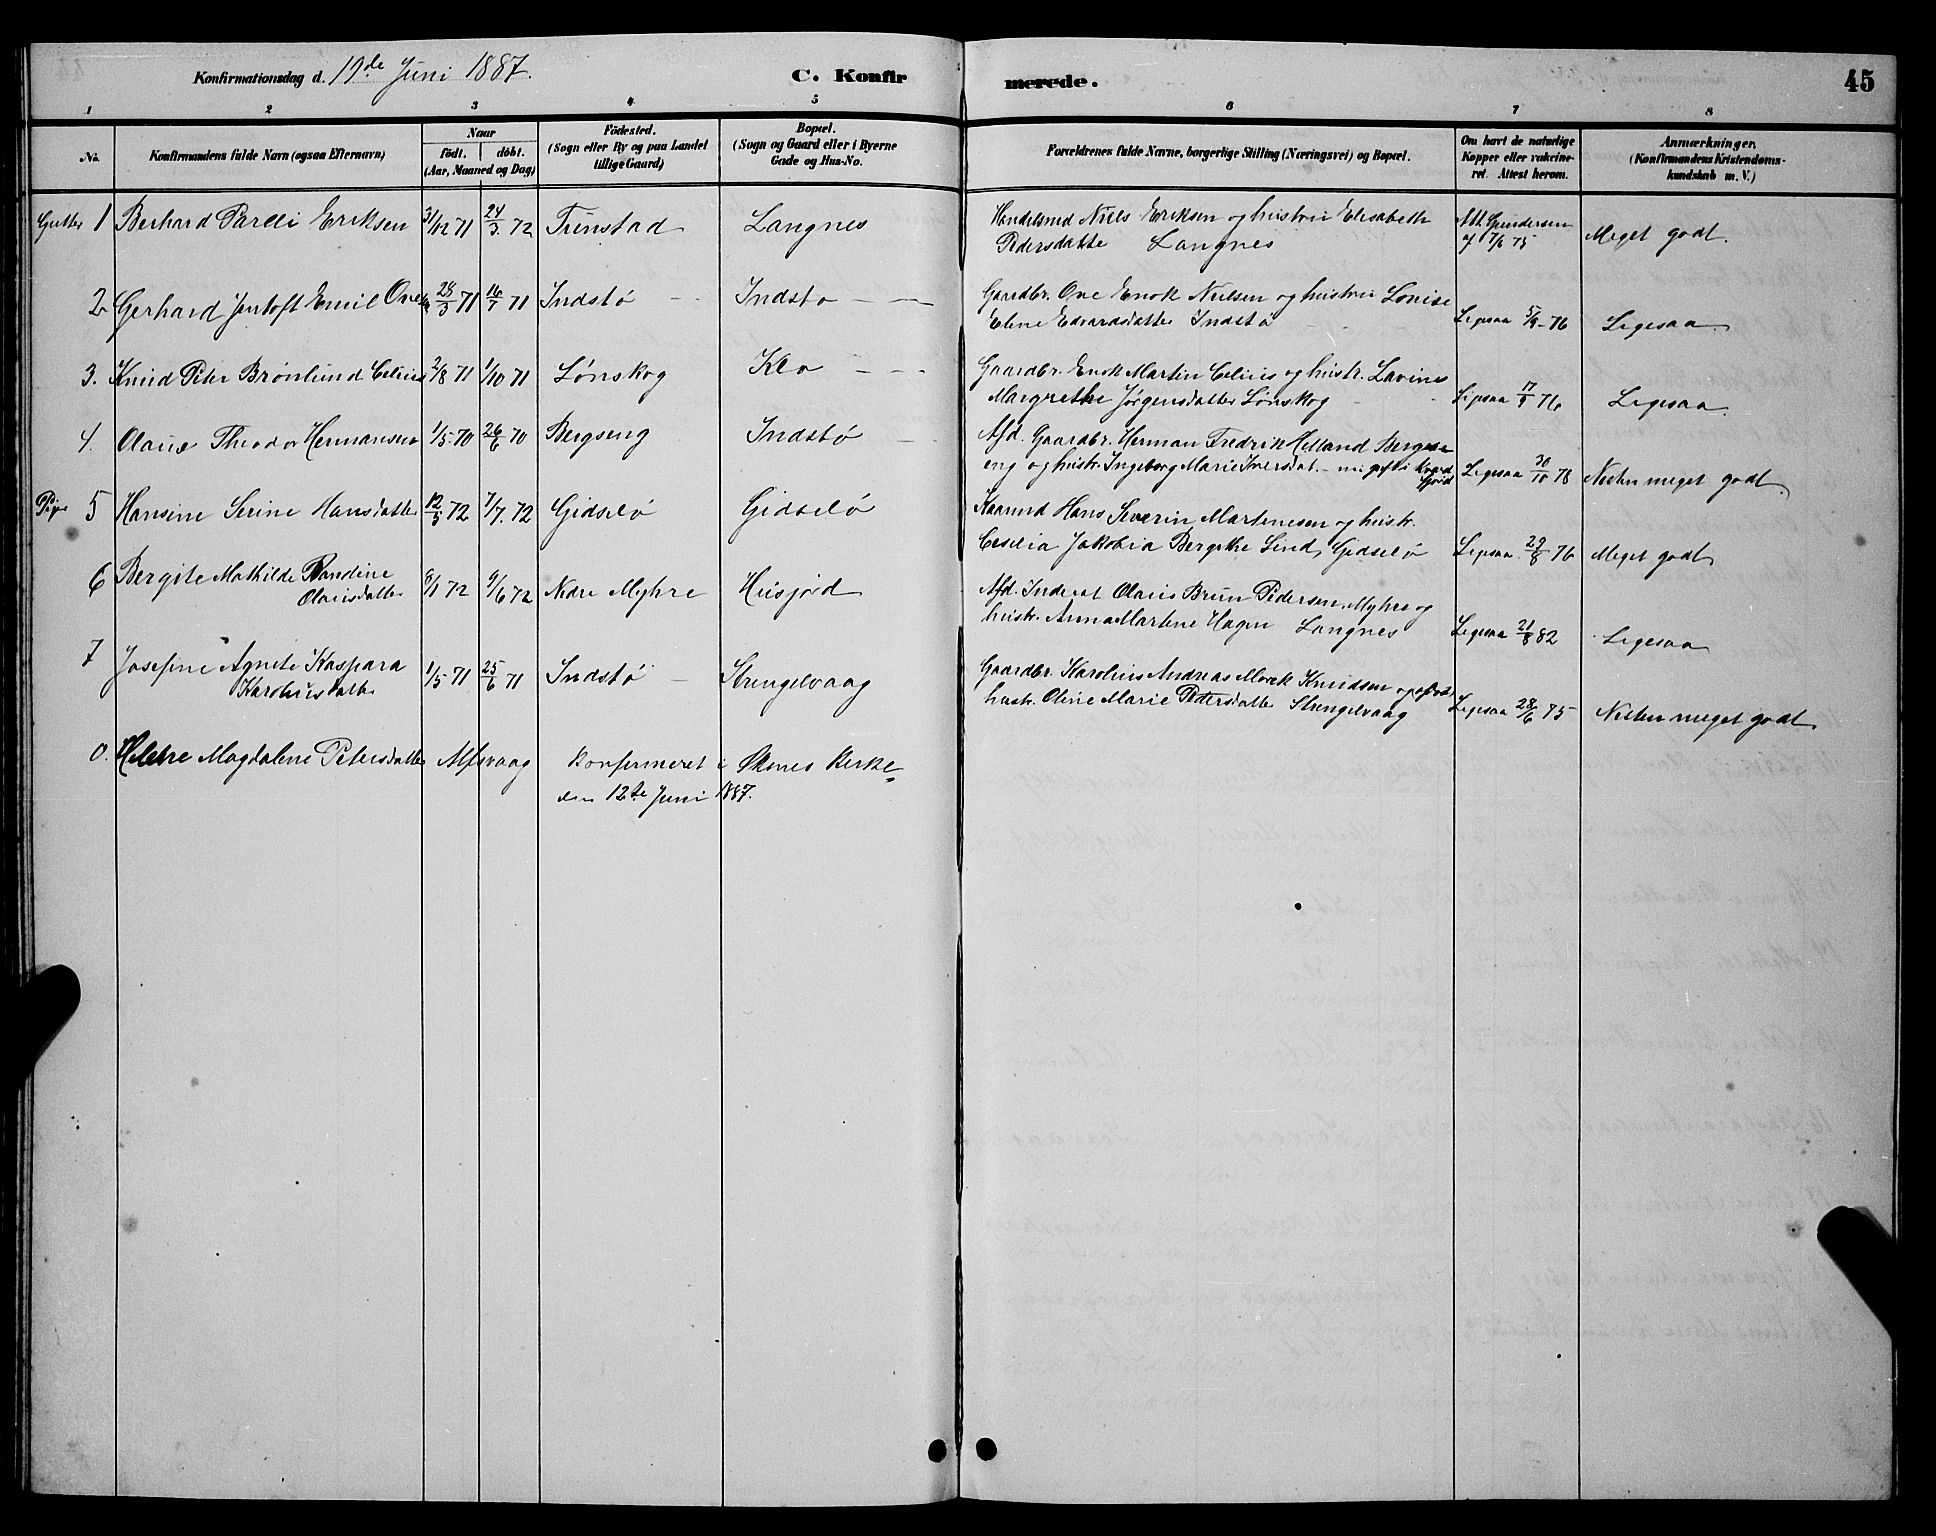 Konfirmationsdag d. 19de Juni 1887.
C. Konfirmerede.
45
1 2 3 4 5 6 7 8
No.
Konfirmandens fulde Navn (ogsaa Efternavn)
Naar
födt. döbt.
(Aar, Maaned og Dag)
Födested.
(Sogn eller By og paa Landet
tillige Gaard)
Bopæl.
(Sogn og Gaard eller i Byerne
Gade og Hus-No.
Forældrenes fulde Navne, borgerlige Stilling (Næringsvei) og Bopæl.
Om havt de naturlige
Kopper eller vakcine-
ret. Attest herom.
Anmærkninger.
(Konfirmandens Kristendoms-
kundskab m. V.)
Gutter 1 Berhard Pareli Eriksen 31/12 71 24/3 72 Tunstad Langnes Handelsmd Niels Eriksen og hustru Elisabeth
Pedersdatte Langnes Att. Gundersen
af 7/6 75 Meget godt.
2 Gerhard Jentoft Emil Ove 28/3 71 16/7 71 Indstø Indstø Gaardbr. Ove Enok Nielsen og hustru Lovise
Eline Edvardsdatte Indstø Ligesaa 5/9 76 Ligesaa
3. Knud Peter Brønlund Celius 2/8 71 1/10 71 Lønskog Klo Gaardbr. Enok Martin Celius og hustr. Lavine
Margrethe Jørgensdatter Lønskog Ligesaa 17/9 76 Ligesaa
4. Olaus Theodor Hermansen 1/5 70 26/6 70 Bergseng Indstø Afd. Gaardbr. Herman Fredrik Helland Bergs-
eng og hustr. Ingeborg Marie Iversdat. nu gift i Ligesaa 30/10 78 Nesten meget godt
Piger 5 Hansine Serine Hansdatter 12/3 72 7/7 72 Gidselø Gidselø Kaarmd Hans Severin Martinesen og hustr.
Cesilia Jakobia Bergithe Lind, Gidselø Ligesaa 29/8 76 Meget godt
6 Bergite Mathilde Randine
Olausdatter 8/1 72 9/6 72 Nedre Myhre Husjord Afd. Inderst Olaus Brun Pedersen, Myhre og
hustr. Anna Martine Hagen Langnes Ligesaa 21/8 82 Ligesaa
7 Josefine Agnete Kaspara
Karoliusdatter 1/5 71 25/6 71 Indstø Strengelvaag Gaardbr. Karolius Andreas Moræk Knudsen og
hustr. Oline Marie Pedersdatte Strengelvaag Ligesaa 28/6 75 Nesten meget godt.
0. Helene Magdalene Petersdatter Alfsvaag konfirmeret i Øksnes Kirke
den 12te Juni 1887.